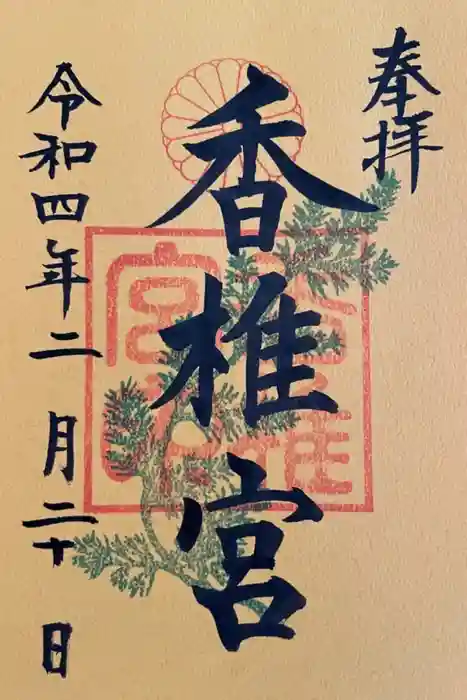 奉拝
香椎宮
令和四年二月二十日